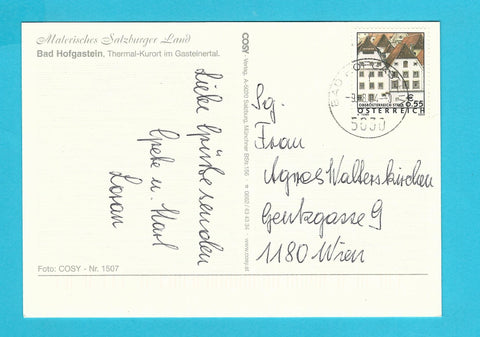 Malerisches Salzburger Land
Bad Hofgastein, Thermal-Kurort im Gasteinertal.
Liebe Grüße senden
Grete u. Karl
Foto: COSY - Nr. 1507
COSY - Verlag, A-5020 Salzburg, Münchner BStr.156 0662 / 43 43 34 - www.cosy.at
Sg.
Frau
Agnes Walterskirchen
Gentzgasse 9
1180 Wien
BAD HOF
5630
€ 0,55
OBERÖSTERREICH STEYR
ÖSTERREICH